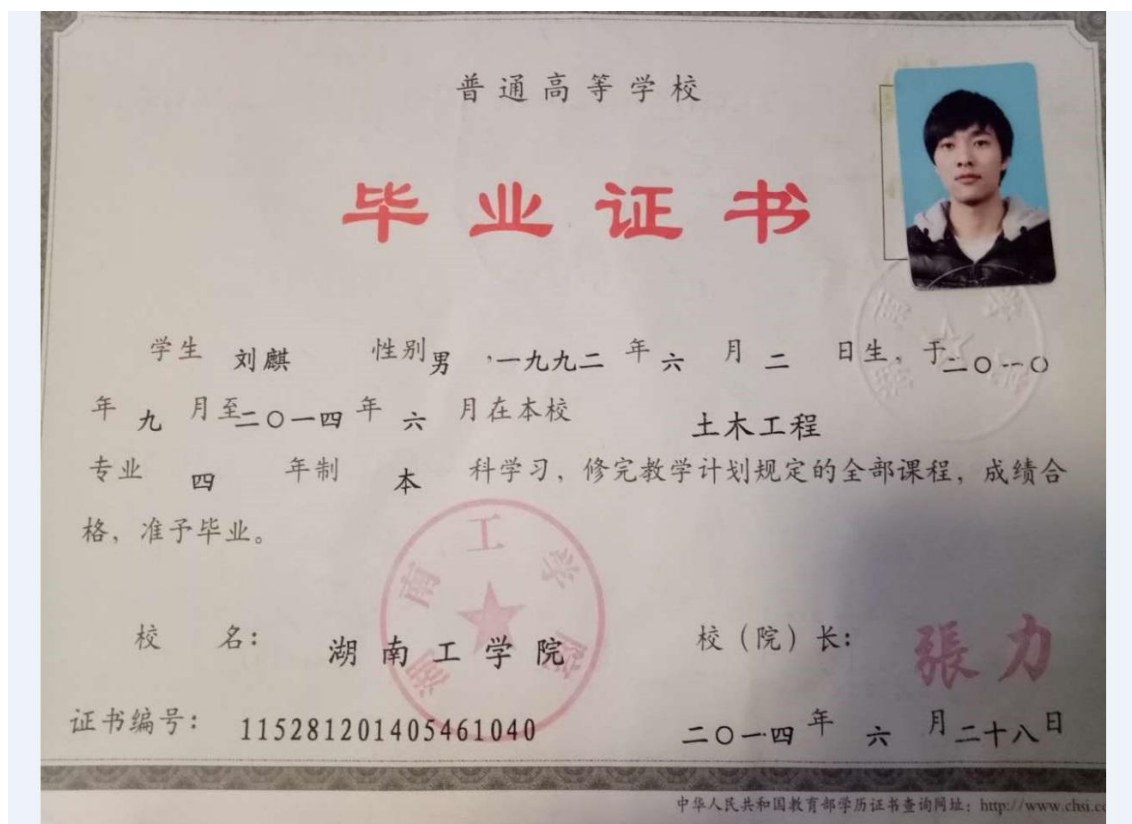 普通高等学校
毕业证书
学生 刘麒 性别 男 ，一九九二 年 六 月 二 日生，于二〇一〇
年 九 月至二〇一四 年 六 月在本校 土木工程
专业 四 年制 本 科学习，修完教学计划规定的全部课程，成绩合
格，准予毕业。
湖南工学院
校 名： 湖南工学院 校（院）长： 張力
证书编号： 115281201405461040 二〇一四 年 六 月二十八日
中华人民共和国教育部学历证书查询网址：http://www.chsi.c